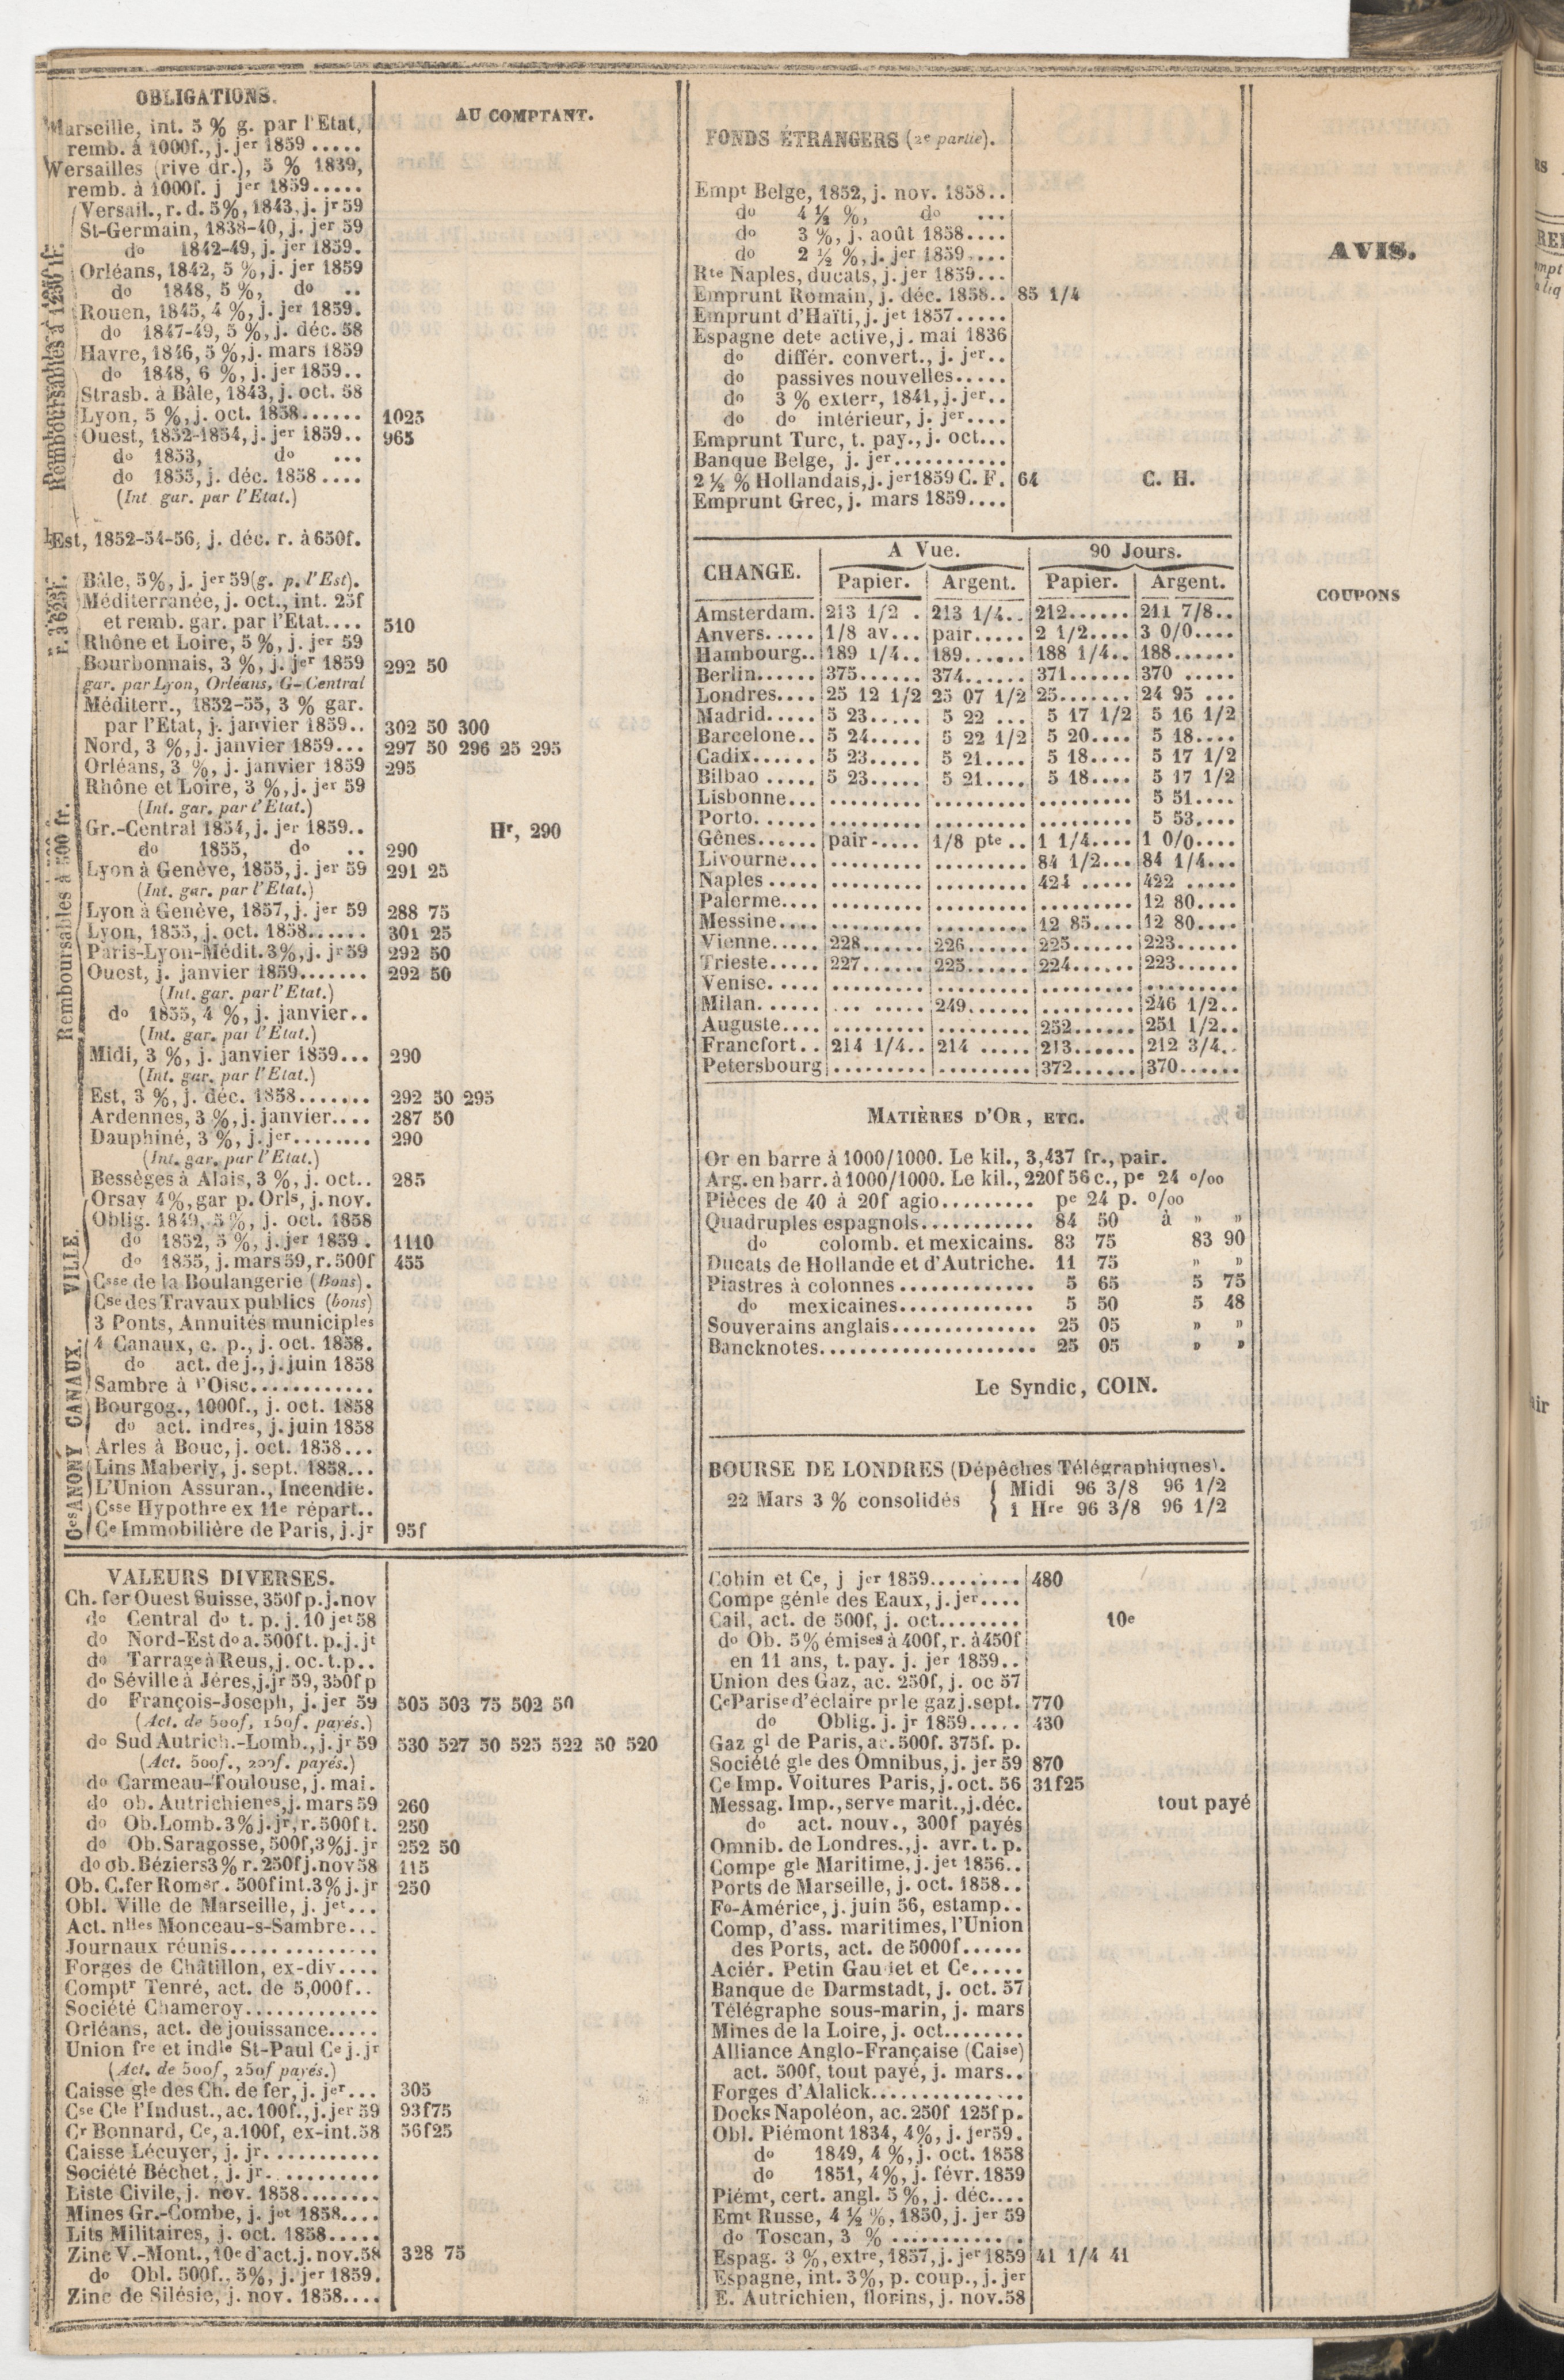 OBLIGATIONS.
AU COMPTANT.
Marseille, int. 5 % g. par l'Etat,
remb. à 1000f., j. jer 1859 .....
Versailles (rive dr.), 5 % 1839,
remb. à 1000f. j jer 1859.....
Remboursables à 1250 fr.
Versail., r. d. 5%, 1843, j. jr 59
St-Germain, 1838-40, j. jer 59
do 1842-49, j. jer 1859.
Orléans, 1842, 5 %, j. jer 1859
do 1848, 5 %, do ..
Rouen, 1845, 4 %, j. jer 1859.
do 1847-49, 5 %, j. déc. 58
Havre, 1846, 5 %, j. mars 1859
do 1848, 6 %, j. jer 1859..
Strasb. à Bâle, 1843, j. oct. 58
Lyon, 5 %, j. oct. 1858...... 1025
Ouest, 1852-1854, j. jer 1859.. 965
do 1853, do ...
do 1855, j. déc. 1858 ....
(Int gar. par l'Etat.)
Est, 1852-54-56, j. déc. r. à 650f.
r. à 625f.
Bâle, 5%, j. jer 59 (g. p. l'Est).
Méditerranée, j. oct., int. 25f
et remb. gar. par l'Etat.... 510
Rhône et Loire, 5 %, j. jer 59
Remboursables à 500 fr.
Bourbonnais, 3 %, j. jer 1859 292 50
gar. par Lyon, Orléans, G-Central
Méditerr., 1852-55, 3 % gar.
par l'Etat, j. janvier 1859.. 302 50 300
Nord, 3 %, j. janvier 1859... 297 50 296 25 295
Orléans, 3 %, j. janvier 1859 295
Rhône et Loire, 3 %, j. jer 59
(Int. gar. par l'Etat.)
Gr.-Central 1854, j. jer 1859.. Hr, 290
do 1855, do .. 290
Lyon à Genève, 1855, j. jer 59 291 25
(Int. gar. par l'Etat.)
Lyon à Genève, 1857, j. jer 59 288 75
Lyon, 1855, j. oct. 1858...... 301 25
Paris-Lyon-Médit. 3%, j. jr 59 292 50
Ouest, j. janvier 1859....... 292 50
(Int. gar. par l'Etat.)
do 1855, 4 %, j. janvier..
(Int. gar. par l'Etat.)
Midi, 3 %, j. janvier 1859... 290
(Int. gar. par l'Etat.)
Est, 3 %, j. déc. 1858....... 292 50 295
Ardennes, 3 %, j. janvier.... 287 50
Dauphiné, 3 %, j. jer........ 290
(Int. gar. par l'Etat.)
Bessèges à Alais, 3 %, j. oct.. 285
VILLE.
Orsay 4%, gar p. Orls, j. nov.
Oblig. 1849, 5 %, j. oct. 1858
do 1852, 5 %, j. jer 1859 . 1110
do 1855, j. mars 59, r. 500f 455
Csse de la Boulangerie (Bons).
Cse des Travaux publics (bons)
3 Ponts, Annuités municiples
CANAUX.
4 Canaux, c. p., j. oct. 1858.
do act. de j., j. juin 1858
Sambre à l'Oise............
Bourgog., 1000f., j. oct. 1858
do act. indres, j. juin 1858
Arles à Bouc, j. oct. 1858...
Ces ANONY
Lins Maberly, j. sept. 1858...
L'Union Assuran., Incendie.
Csse Hypothre ex 11e répart..
Ce Immobilière de Paris, j. jr 95f
VALEURS DIVERSES.
Ch. fer Ouest Suisse, 350f p. j. nov
do Central do t. p. j. 10 jet 58
do Nord-Est do a. 500f t. p. j. jt
do Tarrage à Reus, j. oc. t. p..
do Séville à Jéres, j. jr 59, 350f p
do François-Joseph, j. jer 59 505 503 75 502 50
(Act. de 500f, 150f. payés.)
do Sud Autrich.-Lomb., j. jr 59 530 527 50 525 522 50 520
(Act. 500f., 200f. payés.)
do Carmeau-Toulouse, j. mai.
do ob. Autrichienes, j. mars 59 260
do Ob. Lomb. 3% j. jr, r. 500f t. 250
do Ob. Saragosse, 500f, 3% j. jr 252 50
do ob. Béziers 3% r. 250f j. nov 58 115
Ob. C. fer Romsr. 500f int. 3% j. jr 250
Obl. Ville de Marseille, j. jet...
Act. nlles Monceau-s-Sambre...
Journaux réunis...............
Forges de Châtillon, ex-div....
Comptr Tenré, act. de 5,000f..
Société Chameroy.............
Orléans, act. de jouissance.....
Union fre et indle St-Paul Ce j. jr
(Act. de 500f, 250f payés.)
Caisse gle des Ch. de fer, j. jer... 305
Cse Cle l'Indust., ac. 100f., j. jer 59 93f75
Cr Bonnard, Ce, a. 100f, ex-int. 58 56f25
Caisse Lécuyer, j. jr...........
Société Béchet, j. jr...........
Liste Civile, j. nov. 1858........
Mines Gr.-Combe, j. jet 1858....
Lits Militaires, j. oct. 1858.....
Zinc V.-Mont., 10e d'act. j. nov. 58 328 75
do Obl. 500f., 5%, j. jer 1859.
Zinc de Silésie, j. nov. 1858....
FONDS ÉTRANGERS (2e partie).
Empt Belge, 1852, j. nov. 1858..
do 4 ½ %, do ...
do 3 %, j. août 1858....
do 2 ½ %, j. jer 1859....
Rte Naples, ducats, j. jer 1859...
Emprunt Romain, j. déc. 1858.. 85 1/4
Emprunt d'Haïti, j. jet 1857.....
Espagne dete active, j. mai 1836
do différ. convert., j. jer..
do passives nouvelles.....
do 3 % exterr, 1841, j. jer..
do do intérieur, j. jer....
Emprunt Turc, t. pay., j. oct...
Banque Belge, j. jer...........
2 ½ % Hollandais, j. jer 1859 C. F. 64 C. H.
Emprunt Grec, j. mars 1859....
CHANGE. A Vue. 90 Jours.
Papier. Argent. Papier. Argent.
Amsterdam. 213 1/2 . 213 1/4.. 212...... 211 7/8..
Anvers..... 1/8 av... pair..... 2 1/2.... 3 0/0....
Hambourg.. 189 1/4.. 189...... 188 1/4.. 188......
Berlin...... 375...... 374...... 371...... 370 .....
Londres.... 25 12 1/2 25 07 1/2 25....... 24 95 ...
Madrid..... 5 23..... 5 22 ... 5 17 1/2 5 16 1/2
Barcelone.. 5 24..... 5 22 1/2 5 20.... 5 18....
Cadix...... 5 23..... 5 21.... 5 18.... 5 17 1/2
Bilbao ..... 5 23..... 5 21.... 5 18.... 5 17 1/2
Lisbonne... ......... ......... ......... 5 51....
Porto...... ......... ......... ......... 5 53....
Gênes...... pair..... 1/8 pte .. 1 1/4.... 1 0/0....
Livourne... ......... ......... 84 1/2... 84 1/4...
Naples ..... ......... ......... 424 ..... 422 .....
Palerme.... ......... ......... ......... 12 80....
Messine.... ......... ......... 12 85.... 12 80....
Vienne..... 228...... 226...... 225...... 223......
Trieste..... 227...... 225...... 224...... 223......
Venise..... ......... ......... ......... .........
Milan...... ... ..... 249...... ......... 246 1/2..
Auguste.... ......... ......... 252...... 251 1/2..
Francfort.. 214 1/4.. 214 ..... 213...... 212 3/4..
Petersbourg ......... ......... 372...... 370......
MATIÈRES D'OR, ETC.
Or en barre à 1000/1000. Le kil., 3,437 fr., pair.
Arg. en barr. à 1000/1000. Le kil., 220f 56 c., pe 24 o/oo
Pièces de 40 à 20f agio......... pe 24 p. o/oo
Quadruples espagnols........... 84 50 à » »
do colomb. et mexicains. 83 75 83 90
Ducats de Hollande et d'Autriche. 11 75 » »
Piastres à colonnes ............. 5 65 5 75
do mexicaines............. 5 50 5 48
Souverains anglais.............. 25 05 » »
Bancknotes..................... 25 05 » »
Le Syndic, COIN.
BOURSE DE LONDRES (Dépêches Télégraphiques).
22 Mars 3 % consolidés { Midi 96 3/8 96 1/2
1 Hre 96 3/8 96 1/2
Cohin et Ce, j jer 1859......... 480
Compe génle des Eaux, j. jer....
Cail, act. de 500f, j. oct........ 10e
do Ob. 5% émises à 400f, r. à 450f
en 11 ans, t. pay. j. jer 1859..
Union des Gaz, ac. 250f, j. oc 57
Ce Parise d'éclaire pr le gaz j. sept. 770
do Oblig. j. jr 1859..... 430
Gaz gl de Paris, ac. 500f. 375f. p.
Société gle des Omnibus, j. jer 59 870
Ce Imp. Voitures Paris, j. oct. 56 31f25
Messag. Imp., serve marit., j. déc. tout payé
do act. nouv., 300f payés
Omnib. de Londres., j. avr. t. p.
Compe gle Maritime, j. jet 1856..
Ports de Marseille, j. oct. 1858..
Fo-Américe, j. juin 56, estamp..
Comp, d'ass. maritimes, l'Union
des Ports, act. de 5000f......
Aciér. Petin Gaudet et Ce.....
Banque de Darmstadt, j. oct. 57
Télégraphe sous-marin, j. mars
Mines de la Loire, j. oct........
Alliance Anglo-Française (Caise)
act. 500f, tout payé, j. mars..
Forges d'Alalick...............
Docks Napoléon, ac. 250f 125f p.
Obl. Piémont 1834, 4%, j. jer 59.
do 1849, 4 %, j. oct. 1858
do 1851, 4%, j. févr. 1859
Piémt, cert. angl. 5 %, j. déc....
Emt Russe, 4 ½ %, 1850, j. jer 59
do Toscan, 3 % ............
Espag. 3 %, extre, 1857, j. jer 1859 41 1/4 41
Espagne, int. 3%, p. coup., j. jer
E. Autrichien, florins, j. nov. 58
AVIS.
COUPONS